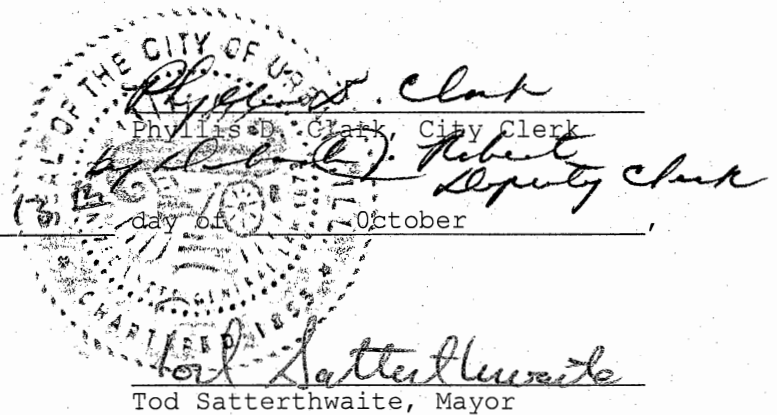 SEAL OF THE CITY OF URBANA, ILL
CHARTERED 1855
Phyllis D. Clark
Phyllis D. Clark, City Clerk
by Deborah J. Roberts
Deputy Clerk
day of October ,
Tod Satterthwaite
Tod Satterthwaite, Mayor